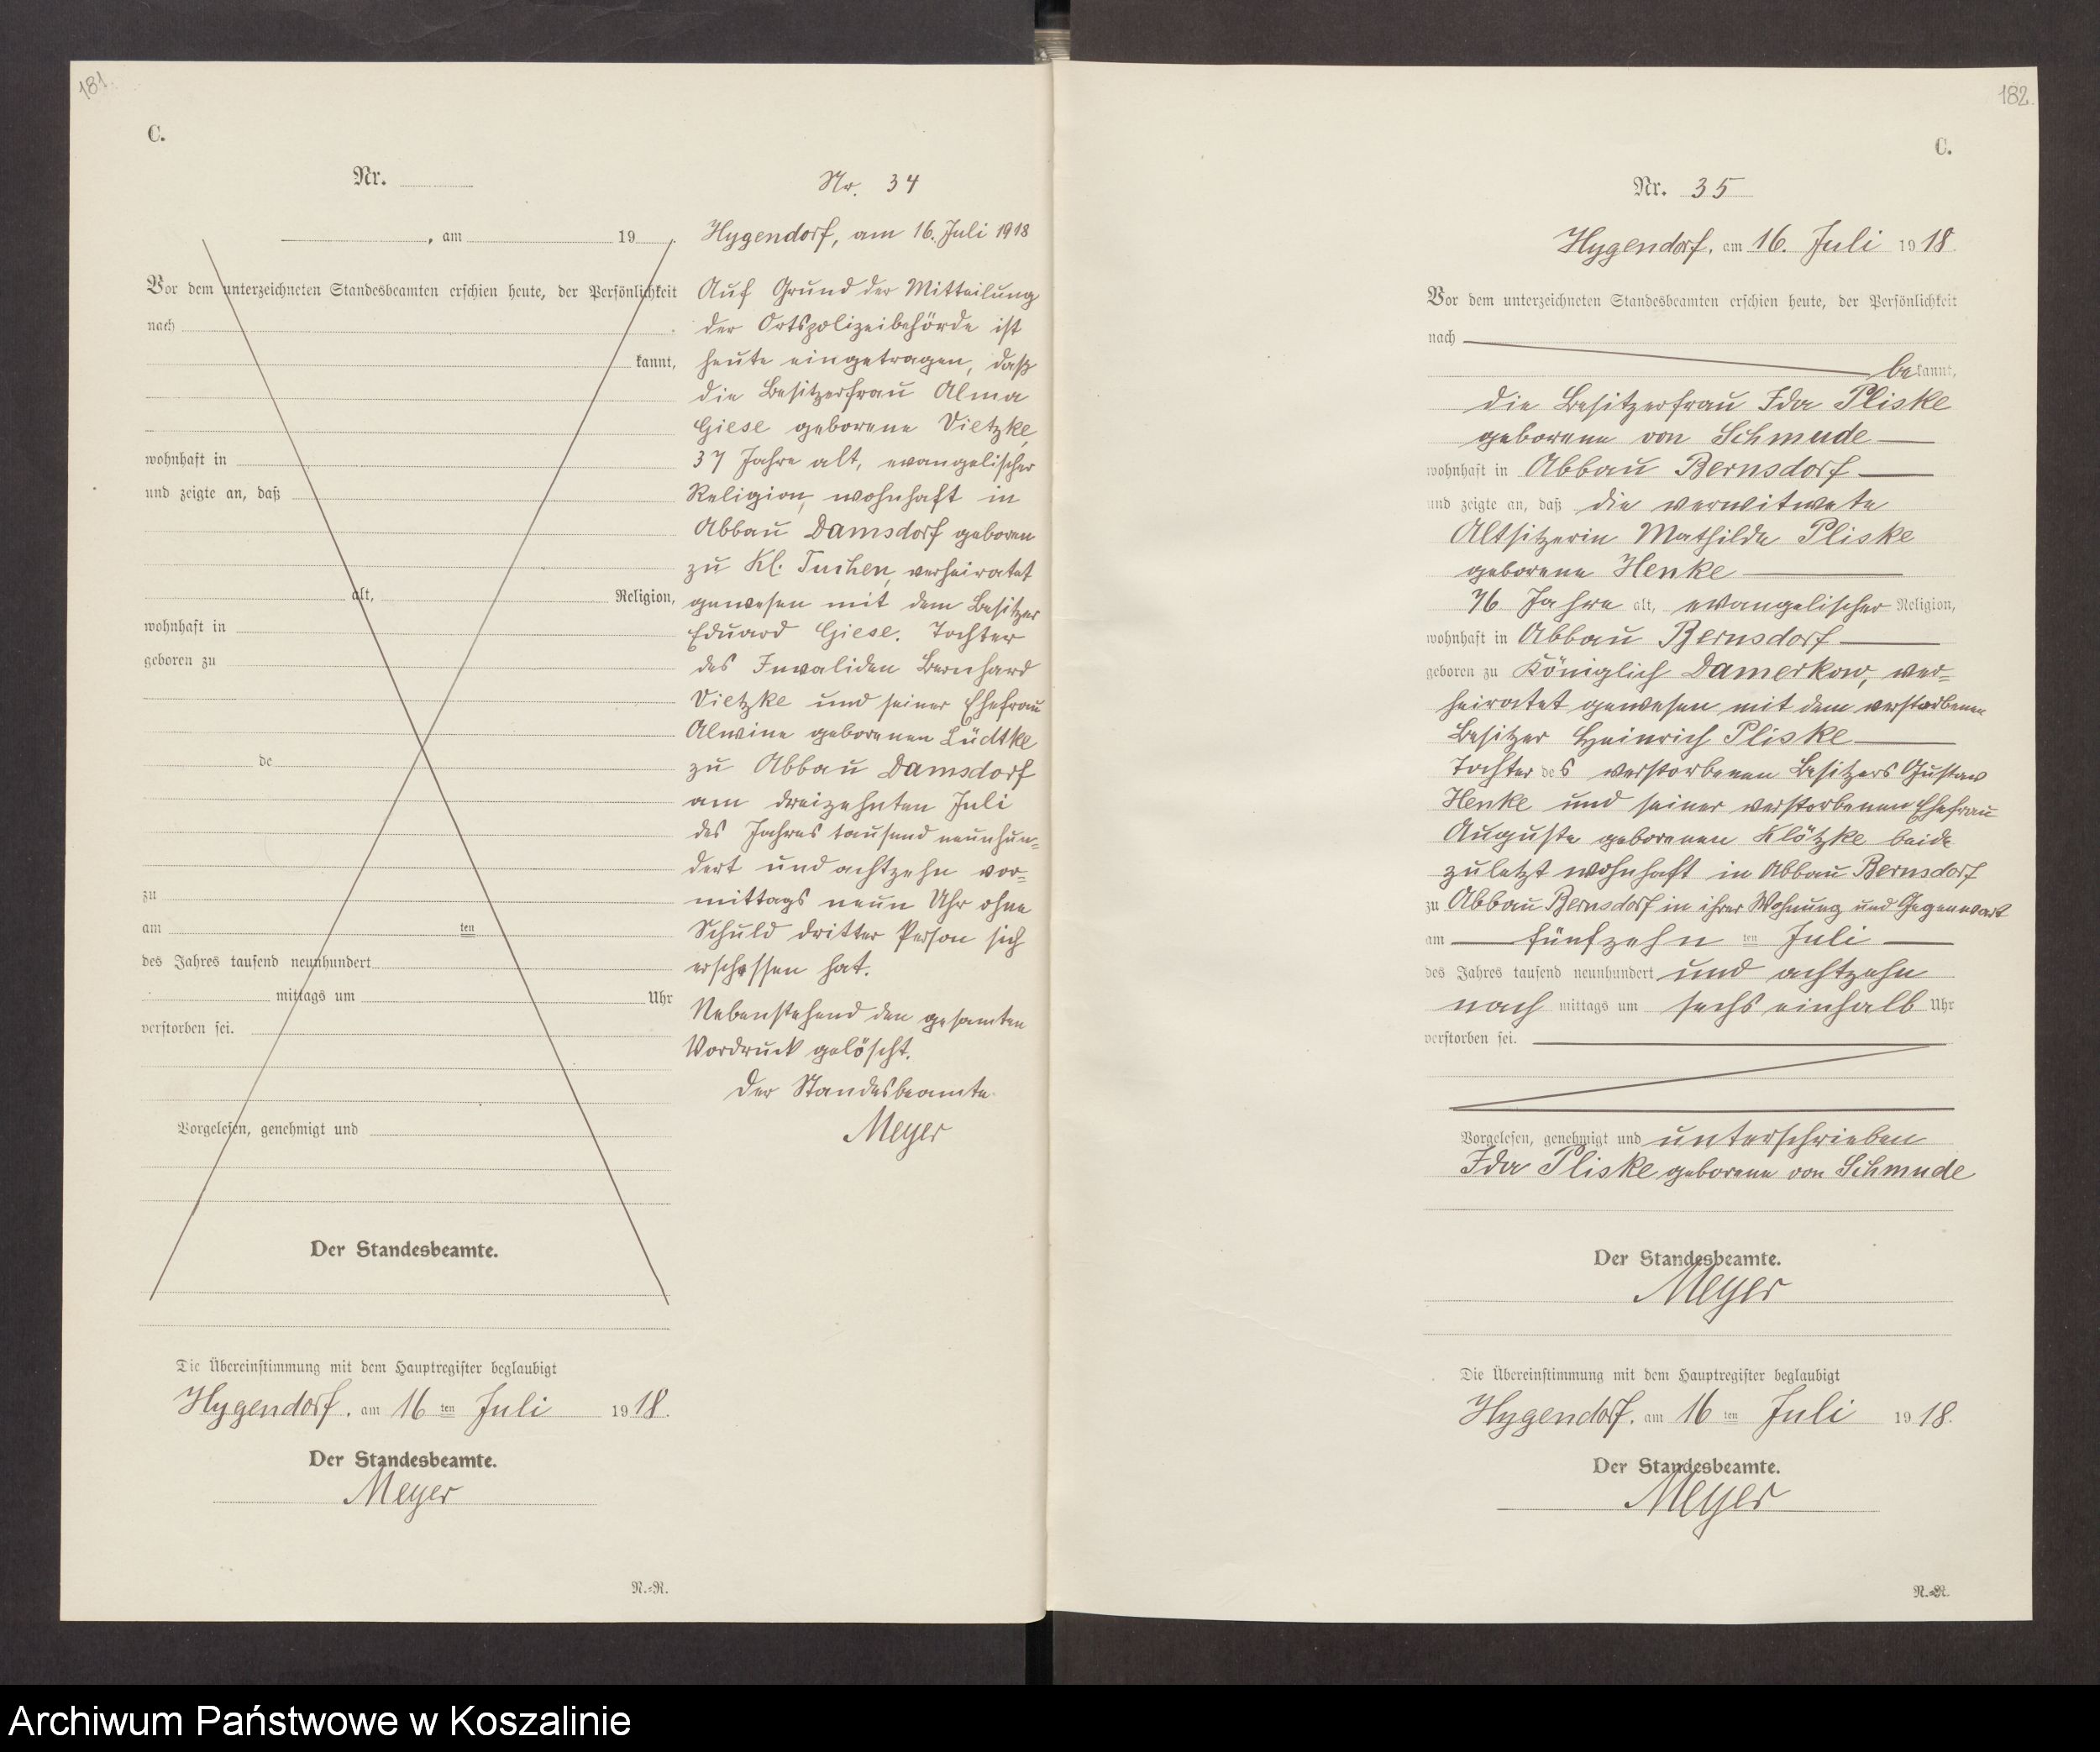 181.
C.
Nr.
, am 19 .
Vor dem unterzeichneten Standesbeamten erschien heute, der Persönlichkeit
nach
kannt,
wohnhaft in
und zeigte an, daß
alt, Religion,
wohnhaft in
geboren zu
de
zu
am ten
des Jahres tausend neunhundert
mittags um Uhr
verstorben sei.
Vorgelesen, genehmigt und
Der Standesbeamte.
Die Übereinstimmung mit dem Hauptregister beglaubigt
Hygendorf, am 16 ten Juli 1918.
Der Standesbeamte.
Meyer
N.=R.
Nr. 34
Hygendorf, am 16. Juli 1918
Auf Grund der Mitteilung
der Ortspolizeibehörde ist
heute eingetragen, daß
die Besitzerfrau Alma
Giese geborene Vietzke,
37 Jahre alt, evangelischer
Religion, wohnhaft in
Abbau Damsdorf geboren
zu Kl. Tuchen, verheiratet
gewesen mit dem Besitzer
Eduard Giese. Tochter
des Invaliden Bernhard
Vietzke und seiner Ehefrau
Alwine geborenen Lüdtke
zu Abbau Damsdorf
am dreizehnten Juli
des Jahres tausend neunhun=
dert und achtzehn vor=
mittags neun Uhr ohne
Schuld dritter Person sich
erschossen hat.
Nebenstehend den gesamten
Vordruck gelöscht.
Der Standesbeamte.
Meyer
182.
C.
Nr. 35
Hygendorf, am 16. Juli 1918.
Vor dem unterzeichneten Standesbeamten erschien heute, der Persönlichkeit
nach
bekannt,
die Besitzerfrau Ida Pliske
geborene von Schmude
wohnhaft in Abbau Bernsdorf
und zeigte an, daß die verwitwete
Altsitzerin Mathilde Pliske
geborene Henke
76 Jahre alt, evangelischer Religion,
wohnhaft in Abbau Bernsdorf
geboren zu Königlich Damerkow, ver=
heiratet gewesen mit dem verstorbenen
Besitzer Heinrich Pliske
Tochter des verstorbenen Besitzers Gustav
Henke und seiner verstorbenen Ehefrau
Auguste geborenen Klötzke beide
zuletzt wohnhaft in Abbau Bernsdorf
zu Abbau Bernsdorf in ihrer Wohnung und Gegenwart
am fünfzehn ten Juli
des Jahres tausend neunhundert und achtzehn
nach mittags um sechs einhalb Uhr
verstorben sei.
Vorgelesen, genehmigt und unterschrieben
Ida Pliske geborene von Schmude
Der Standesbeamte.
Meyer
Die Übereinstimmung mit dem Hauptregister beglaubigt
Hygendorf, am 16 ten Juli 1918.
Der Standesbeamte.
Meyer
N.=R.
Archiwum Państwowe w Koszalinie